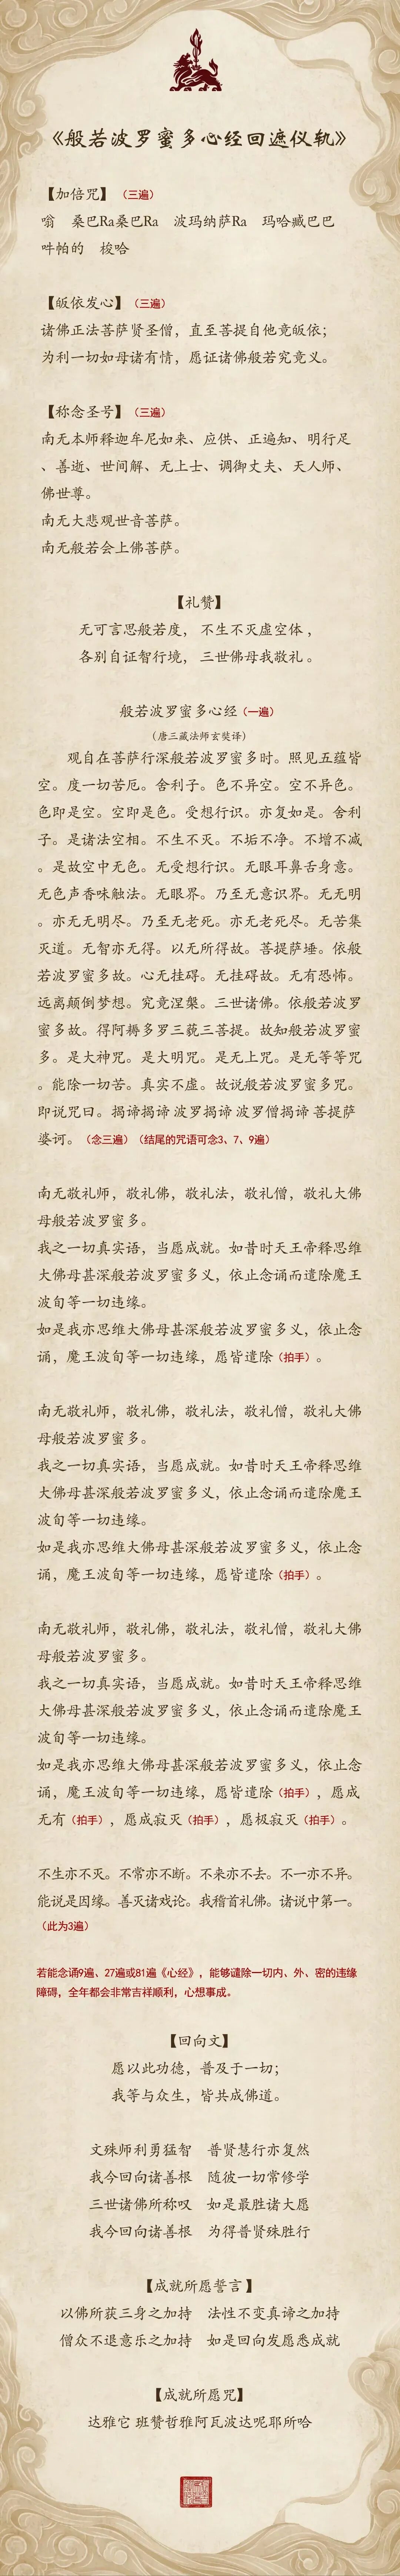 《般若波罗蜜多心经回遮仪轨》
【加倍咒】（三遍）
嗡　桑巴Ra桑巴Ra　波玛纳萨Ra　玛哈臧巴巴
吽帕的　梭哈
【皈依发心】（三遍）
诸佛正法菩萨贤圣僧，直至菩提自他竟皈依；
为利一切如母诸有情，愿证诸佛般若究竟义。
【称念圣号】（三遍）
南无本师释迦牟尼如来、应供、正遍知、明行足
、善逝、世间解、无上士、调御丈夫、天人师、
佛世尊。
南无大悲观世音菩萨。
南无般若会上佛菩萨。
【礼赞】
无可言思般若度， 不生不灭虚空体，
各别自证智行境， 三世佛母我敬礼。
般若波罗蜜多心经（一遍）
（唐三藏法师玄奘译）
观自在菩萨行深般若波罗蜜多时。照见五蕴皆
空。度一切苦厄。舍利子。色不异空。空不异色。
色即是空。空即是色。受想行识。亦复如是。舍利
子。是诸法空相。不生不灭。不垢不净。不增不减
。是故空中无色。无受想行识。无眼耳鼻舌身意。
无色声香味触法。无眼界。乃至无意识界。无无明
。亦无无明尽。乃至无老死。亦无老死尽。无苦集
灭道。无智亦无得。以无所得故。菩提萨埵。依般
若波罗蜜多故。心无挂碍。无挂碍故。无有恐怖。
远离颠倒梦想。究竟涅槃。三世诸佛。依般若波罗
蜜多故。得阿耨多罗三藐三菩提。故知般若波罗蜜
多。是大神咒。是大明咒。是无上咒。是无等等咒
。能除一切苦。真实不虚。故说般若波罗蜜多咒。
即说咒曰。揭谛揭谛 波罗揭谛 波罗僧揭谛 菩提萨
婆诃。（念三遍）（结尾的咒语可念3、7、9遍）
南无敬礼师，敬礼佛，敬礼法，敬礼僧，敬礼大佛
母般若波罗蜜多。
我之一切真实语，当愿成就。如昔时天王帝释思维
大佛母甚深般若波罗蜜多义，依止念诵而遣除魔王
波旬等一切违缘。
如是我亦思维大佛母甚深般若波罗蜜多义，依止念
诵，魔王波旬等一切违缘，愿皆遣除（拍手）。
南无敬礼师，敬礼佛，敬礼法，敬礼僧，敬礼大佛
母般若波罗蜜多。
我之一切真实语，当愿成就。如昔时天王帝释思维
大佛母甚深般若波罗蜜多义，依止念诵而遣除魔王
波旬等一切违缘。
如是我亦思维大佛母甚深般若波罗蜜多义，依止念
诵，魔王波旬等一切违缘，愿皆遣除（拍手）。
南无敬礼师，敬礼佛，敬礼法，敬礼僧，敬礼大佛
母般若波罗蜜多。
我之一切真实语，当愿成就。如昔时天王帝释思维
大佛母甚深般若波罗蜜多义，依止念诵而遣除魔王
波旬等一切违缘。
如是我亦思维大佛母甚深般若波罗蜜多义，依止念
诵，魔王波旬等一切违缘，愿皆遣除（拍手），愿成
无有（拍手），愿成寂灭（拍手），愿极寂灭（拍手）。
不生亦不灭。不常亦不断。不来亦不去。不一亦不异。
能说是因缘。善灭诸戏论。我稽首礼佛。诸说中第一。
（此为3遍）
若能念诵9遍、27遍或81遍《心经》，能够谴除一切内、外、密的违缘
障碍，全年都会非常吉祥顺利，心想事成。
【回向文】
愿以此功德，普及于一切；
我等与众生，皆共成佛道。
文殊师利勇猛智　普贤慧行亦复然
我今回向诸善根　随彼一切常修学
三世诸佛所称叹　如是最胜诸大愿
我今回向诸善根　为得普贤殊胜行
【成就所愿誓言】
以佛所获三身之加持　法性不变真谛之加持
僧众不退意乐之加持　如是回向发愿悉成就
【成就所愿咒】
达雅它 班赞哲雅阿瓦波达呢耶所哈